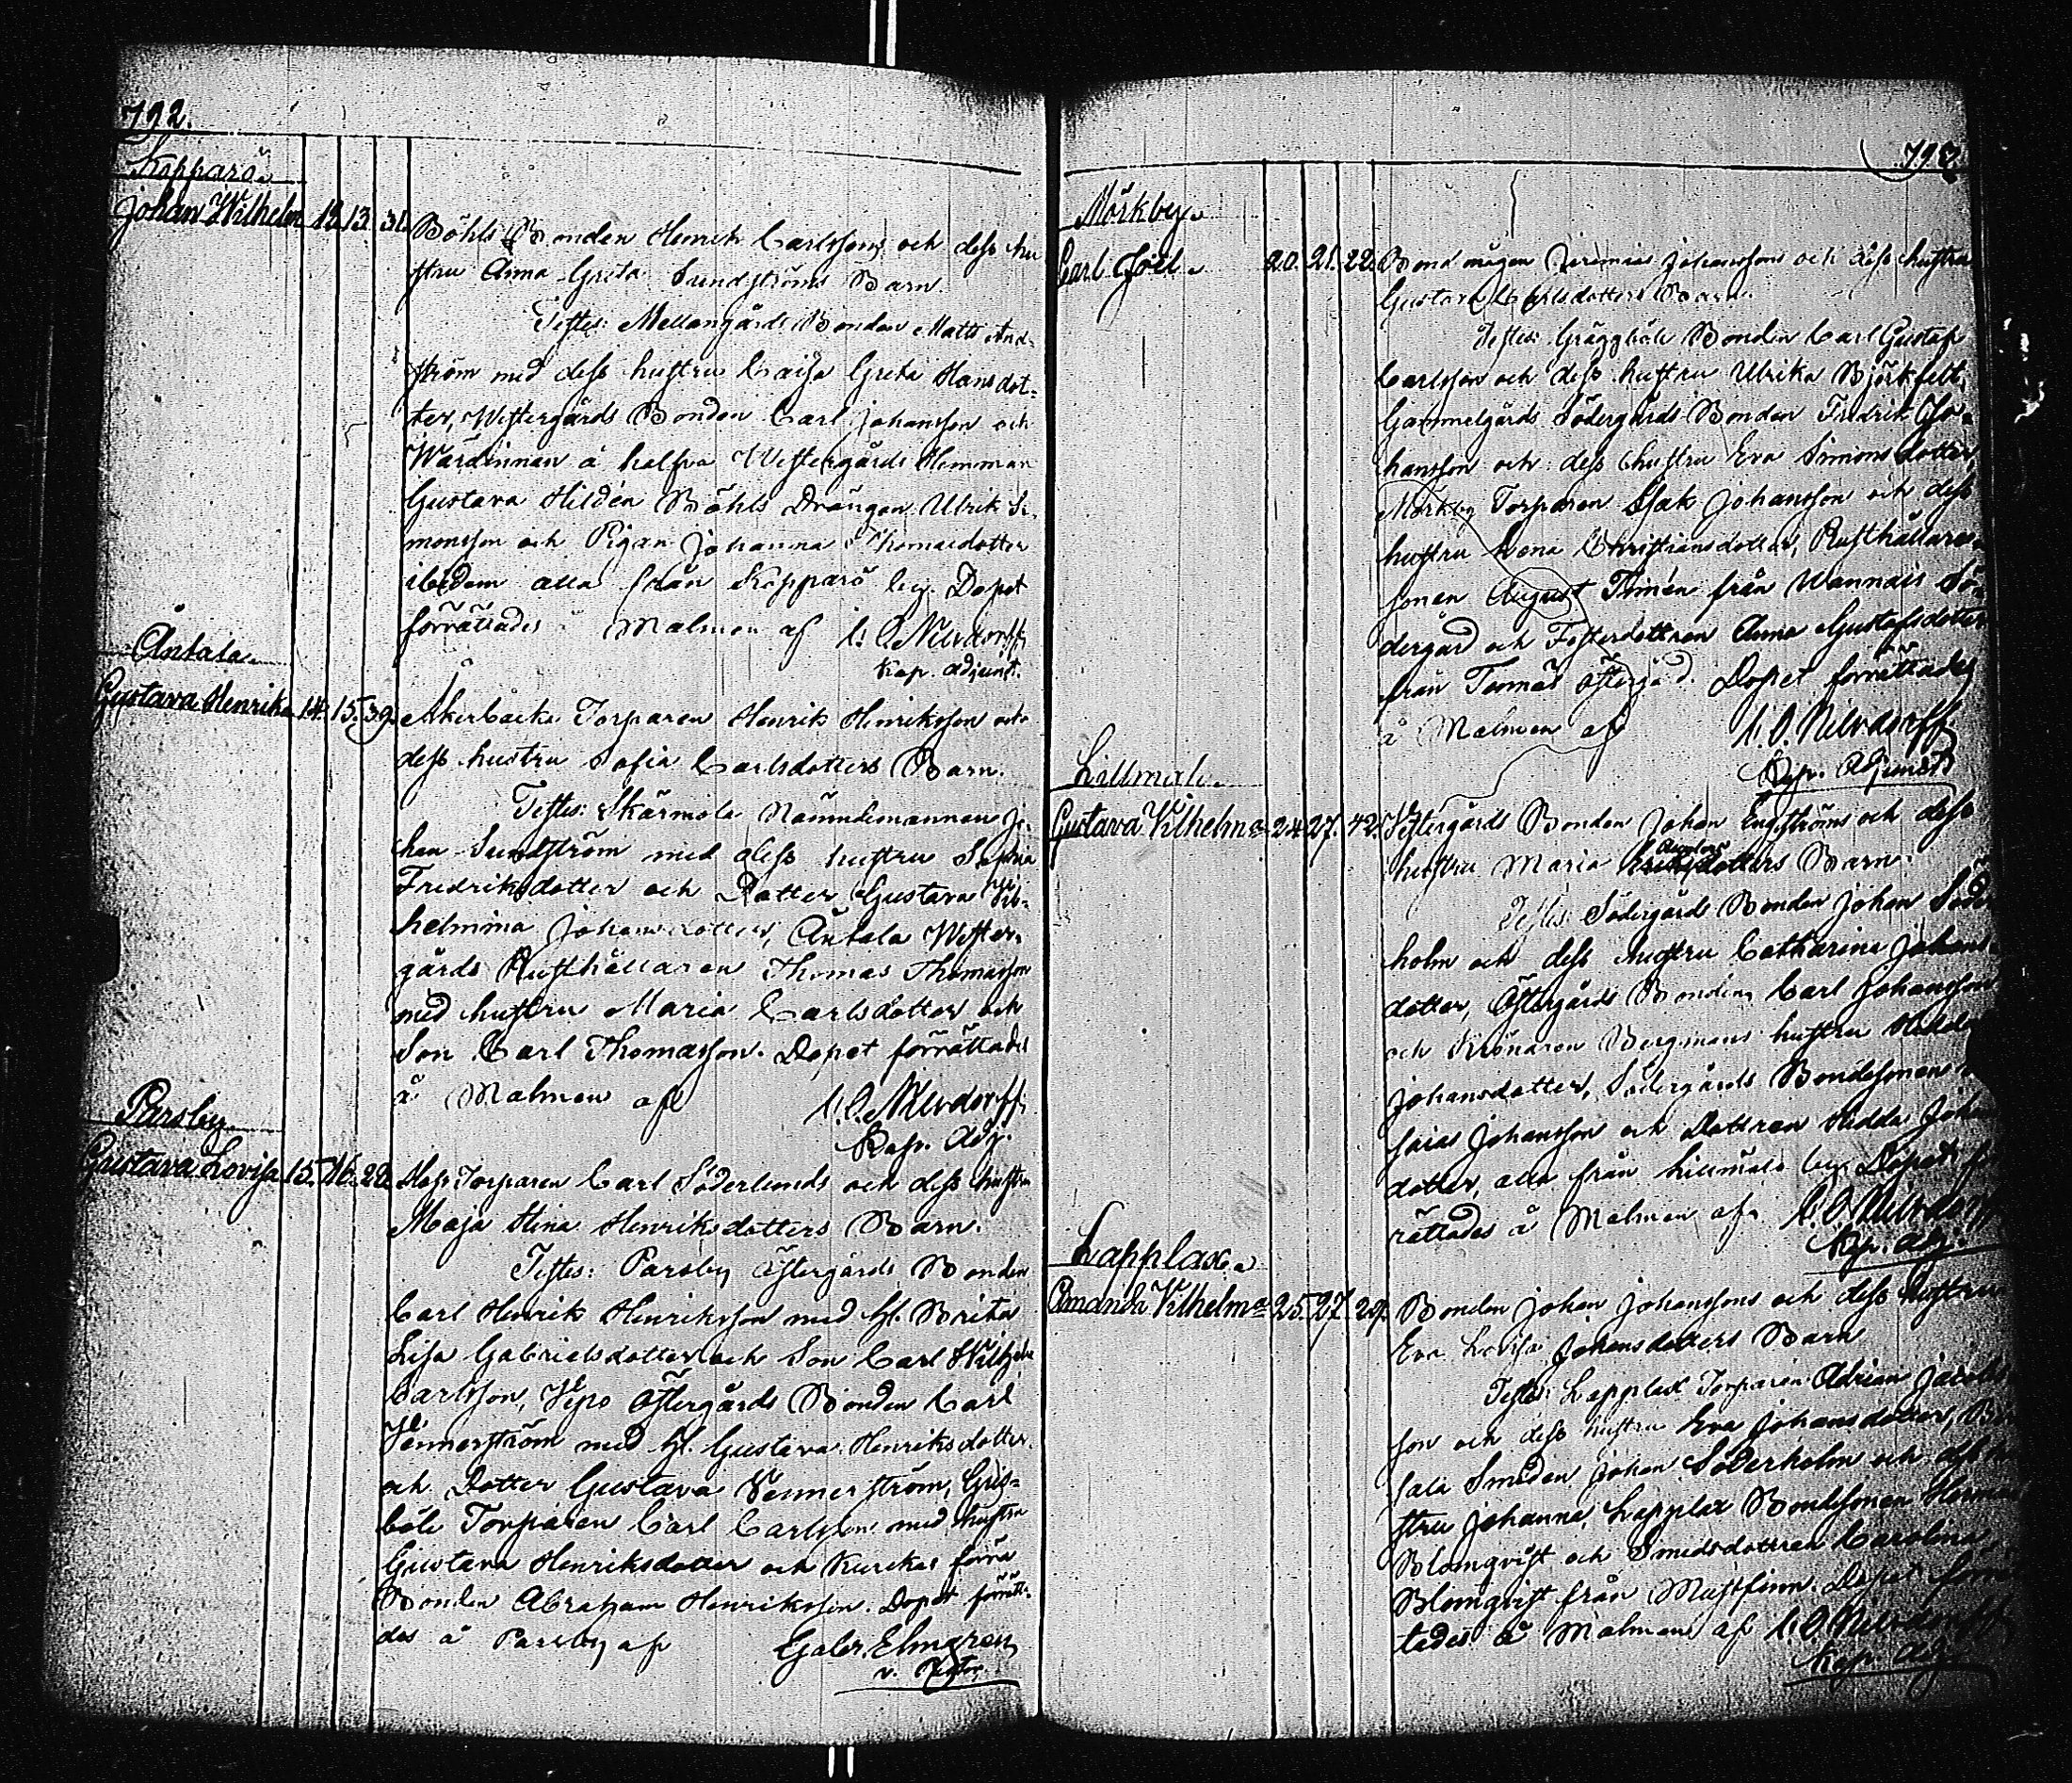 792.
Kopparö.
Johan Wilhelm 12. 13. 31. Böhls Bonden Henrik Carlssons och dess hu
stru Anna Greta Sundströms Barn.
Testes: Mellangårds Bonden Matts And-
ström med dess hustru Caisa Greta Hansdot-
ter, Westergårds Bonden Carl Johansson och
Wärdinnan å halfva Westergårds Hemman
Gustava Hildén Böhls Drängen Ulrik Si-
monsson och Pigan Johanna Thomasdotter
ibidem alla från Kopparö by. Dopet
förrättades å Malmen af C. O. Neudorff
Kap. adjunct.
Antala.
Gustava Henrika 14. 15. 39. Åkerbacka Torparen Henrik Henriksson och
dess hustru Sofia Carlsdotters Barn.
Testes: Skärmola Nämndemannen Jo-
han Sundström med dess hustru Sophia
Fredriksdotter och Dotter Gustava Vil-
helmina Johansdotter, Antala Wester-
gårds Rusthållaren Thomas Thomasson
med hustru Maria Carlsdotter och
Son Carl Thomasson. Dopet förrättades
å Malmen af C. O. Neudorff
Kap. Adj.
Pärsby.
Gustava Lovisa 15. 16. 22. Torparen Carl Söderlunds och dess hustru
Maja Stina Henriksdotters Barn.
Testes: Parsby Östergårds Bonden
Carl Henrik Henriksson med h. Brita
Lisa Gabrielsdotter och Son Carl Wilhelm
Carlsson, Östergårds Bonden Carl
Vennerström med h. Gustava Henriksdotter
och Dotter Gustava Vennerström, Gris-
böle Torparen Carl Carlsson med hustru
Gustava Henriksdotter och Kurckas förra
Bonden Abraham Henriksson. Dopet förrätta-
des å Parsby af Gabr. Elmgren
v. Pastor.
793.
Mörkby.
Carl Joel. 20. 21. 22. Bondmågen Jeremias Johanssons och dess hustru
Gustava Carlsdotters Barn.
Testes: Gräggböle Bonden Carl Gustaf
Carlsson och dess hustru Ulrika Björkfelt,
Gammelgårds Södergårds Bonden Fredrik Jo-
hansson och dess hustru Eva Simonsdotter,
Mörkby Torparen Isak Johansson och dess
hustru Lena Christiansdotter, Rusthållare-
sonen August Timén från Wannais Sö-
dergård och Fosterdottren Anna Gustafsdotter
från Tarmas Östergård. Dopet förrättades
å Malmen af C. O. Neudorff
Kap. Adjunct
Lillmalo.
Gustava Vilhelm:a 24. 27. 42. Westergårds Bonden Johan Engströms och dess
hustru Maria Barn.
Testes: Södergårds Bonden Johan Söder
holm och dess hustru Catharina Johans
dotter, Östergårds Bonden Carl Johansson
och Krönaren Bergmans hustru
Johansdotter, Södergårds Bondesonen
saias Johansson och Dottren Hedda Johans
dotter, alla från Lillmalo by. Dopet för
rättades å Malmen af C. O. Neudorff
Kap. Adj.
Lapplax.
Amanda Vilhelm:a 25. 27. 29. Bonden Johan Johanssons och dess hustru
Eva Lovisa Johansdotters Barn
Testes: Lapplax Torparen Adrian Jacobs
son och dess hustru Eva Johansdotter,
sala Smeden Johan Söderholm och dess hu
stru Johanna, Lapplax Bondesonen Herman
Blomqvist och Smedsdottren Carolina
Blomqvist från Mustfinn. Dopet förrät
tades å Malmen af C. O. Neudorff
Kap. Adj.